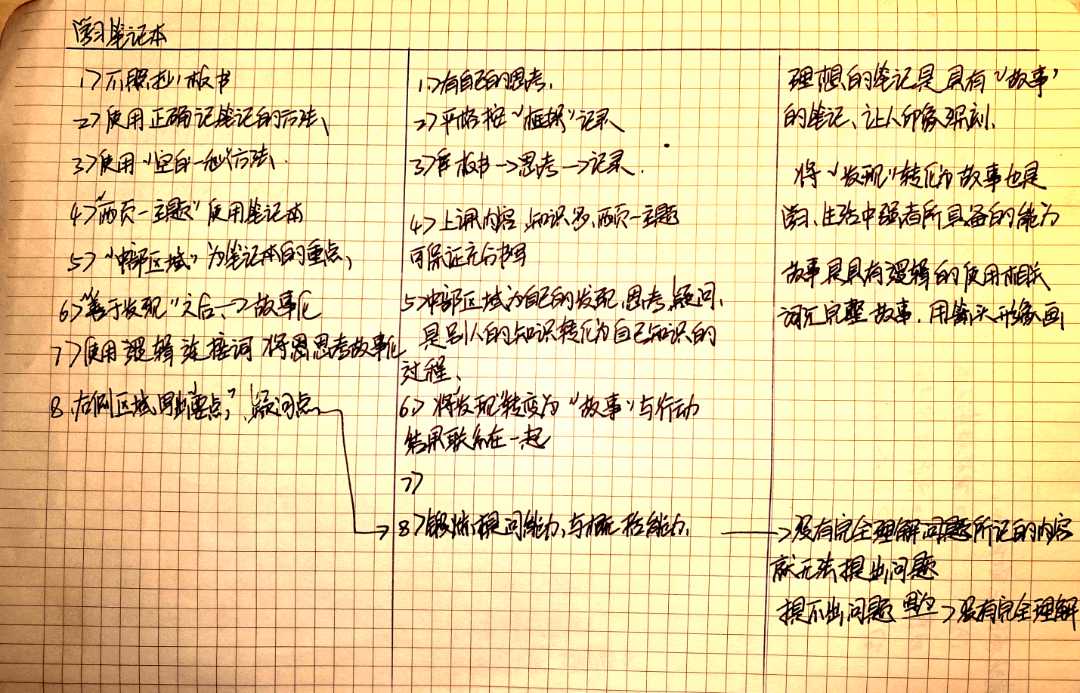 学习笔记本
1>不照抄板书
2>使用正确记笔记的方法、
3>使用"空白一
4>"两页一主题"使用笔记本
5>"中部区域"为笔记本的重点,
6>"善于发现"之后、→故事化
7>使用逻辑连接词将思考故事化
8.右侧区域"要点,"疑问点
1>有自己的思考.
2>严格按"框格"记录
3>看板书→思考→记录.
4>上课内容,知识多、两页一主题
可保证充分书写
5>中部区域为自己的发现、思考、疑问、
是别人的知识转化为自己知识的
过程、
6>将发现转变为"故事"与行动
结果联系在一起
7>
8>锻炼提问能力与概括能力.
理想的笔记是具有"故事"
的笔记、让人印象深刻.
将"发现"转化为故事也是
学习、生活中强者所具备的能力
故事是具有逻辑的使用相关
词汇完整故事.用箭头形象画
→没有完全理解问题所记的内容
就无法提出问题
提不出问题 →没有完全理解